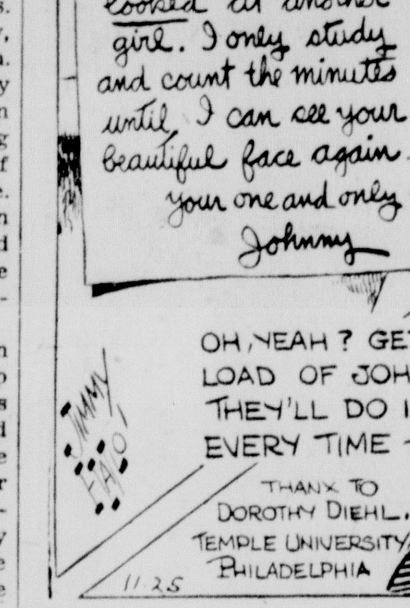 looked at another
girl. I only study
and count the minutes
until I can see your
beautiful face again.
your one and only
Johnny
OH, YEAH? GE
LOAD OF JOH
THEY'LL DO I
EVERY TIME -
JIMMY
HATLO
THANX TO
DOROTHY DIEHL,
TEMPLE UNIVERSITY,
PHILADELPHIA
11-25